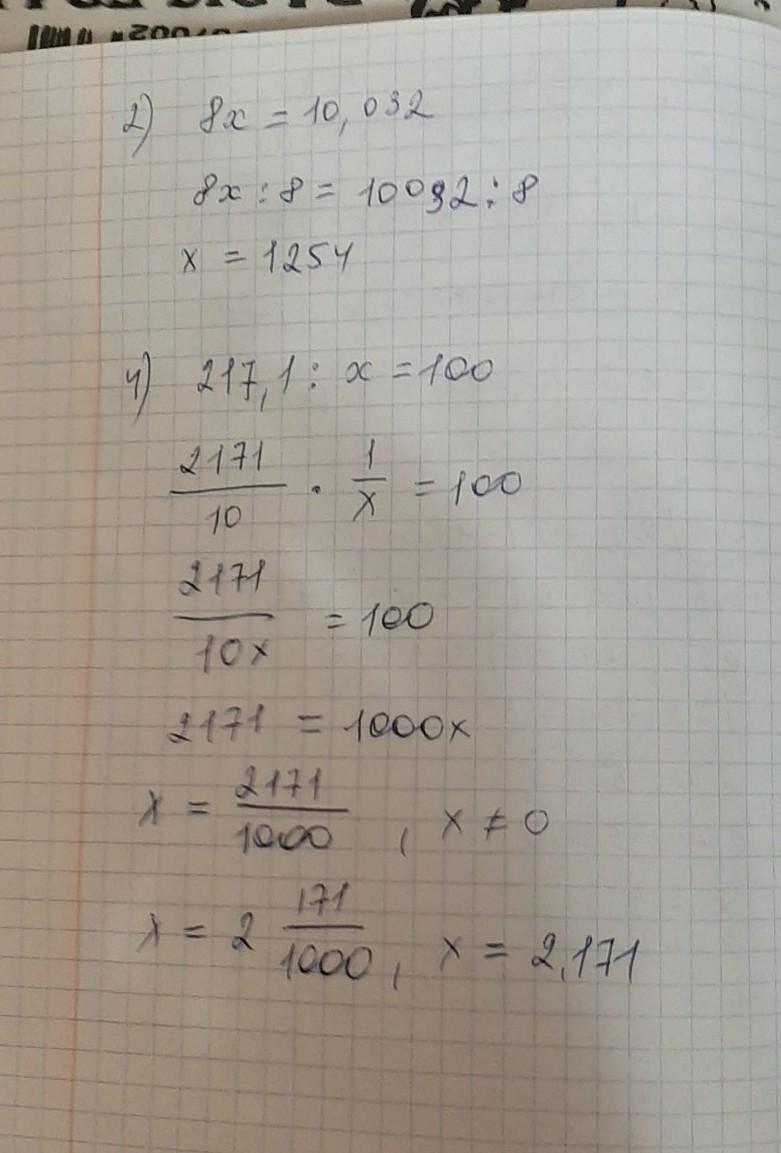 2) 8x = 10,032
8x : 8 = 10032 : 8
x = 1254
4) 217,1 : x = 100
2171/10 · 1/x = 100
2171/10x = 100
2171 = 1000x
x = 2171/1000, x ≠ 0
x = 2 171/1000, x = 2,171